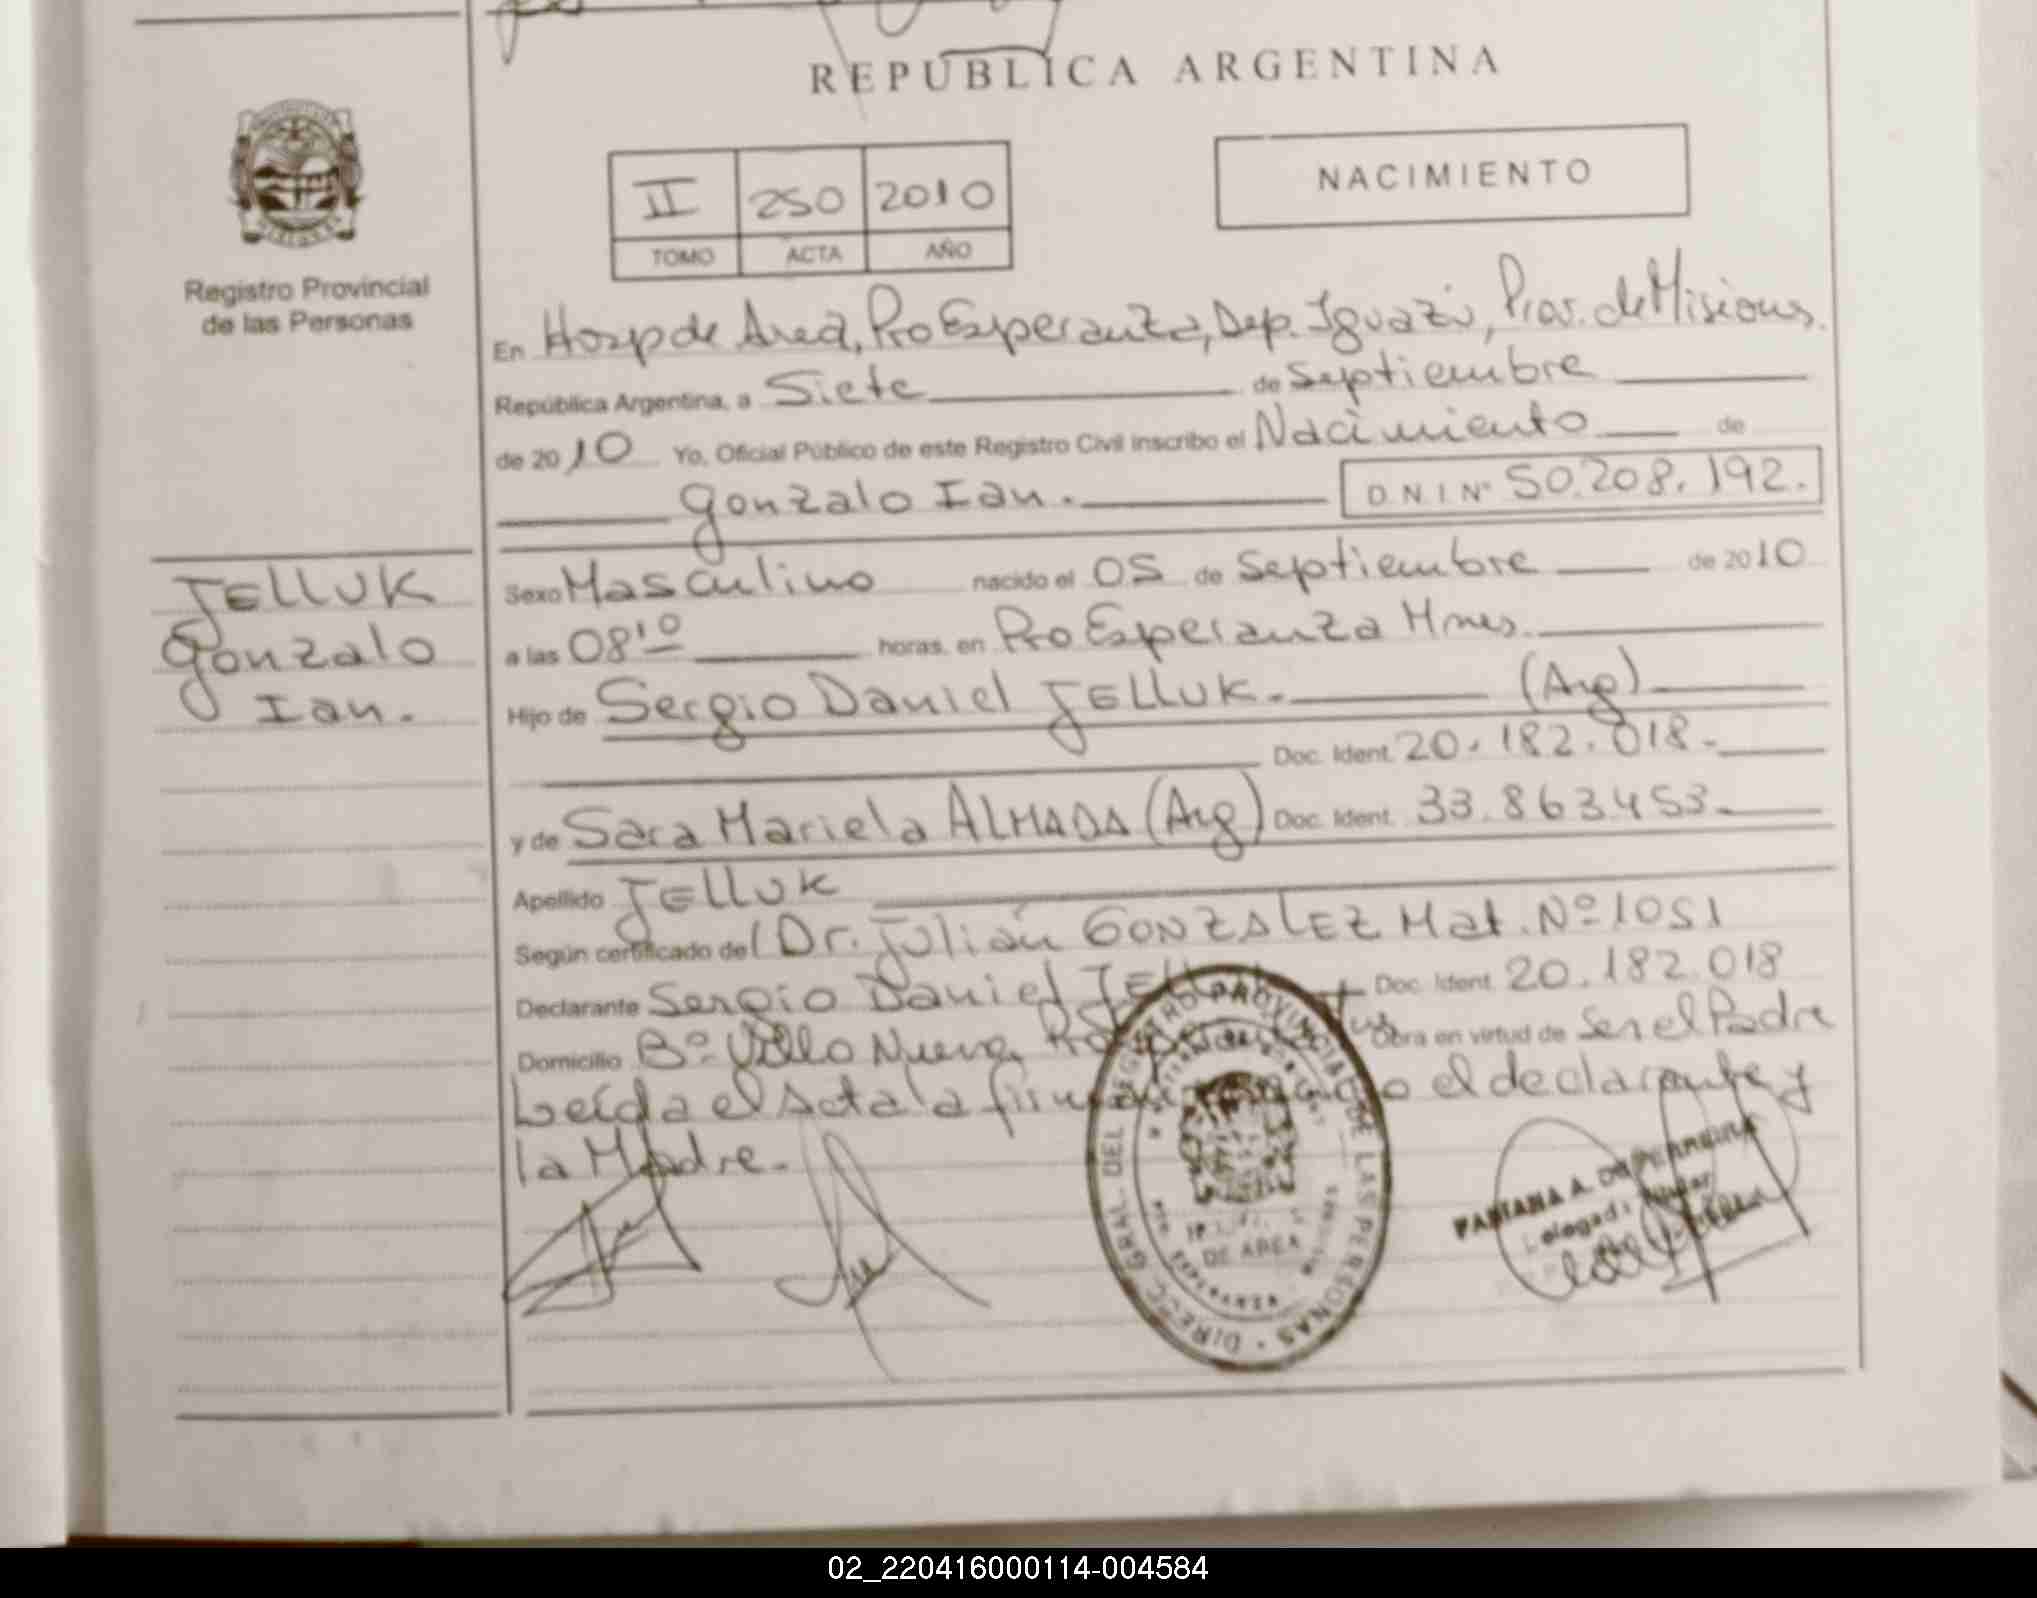 REPUBLICA ARGENTINA
NACIMIENTO
II 250 2010
TOMO ACTA AÑO
Registro Provincial
de las Personas
En Hosp de Area, Pto Esperanza, Dep. Iguazú, Prov. de Misiones.
República Argentina, a Siete de Septiembre
de 2010 Yo, Oficial Público de este Registro Civil inscribo el Nacimiento de
Gonzalo Ian. D N I Nº 50.208.192.
JELLUK
Gonzalo
Ian.
Sexo Masculino nacido el 05 de Septiembre de 2010
a las 08¹⁰ horas. en Pto Esperanza Mnes.
Hijo de Sergio Daniel JELLUK. (Arg)
Doc. Ident. 20.182.018.
y de Sara Mariela ALMADA (Arg) Doc. Ident. 33.863.453.
Apellido JELLUK
Según certificado del Dr. Julián GONZALEZ Mat. Nº 1051
Declarante Sergio Daniel Doc. Ident. 20.182.018
Domicilio Bº Villa Nueva, Obra en virtud de Ser el Padre
Leída el Acta la el declarante y
la Madre.
DIREC. GRAL. DEL REGISTRO PROVINCIAL DE LAS PERSONAS
DE AREA
FABIANA A.
02_220416000114-004584